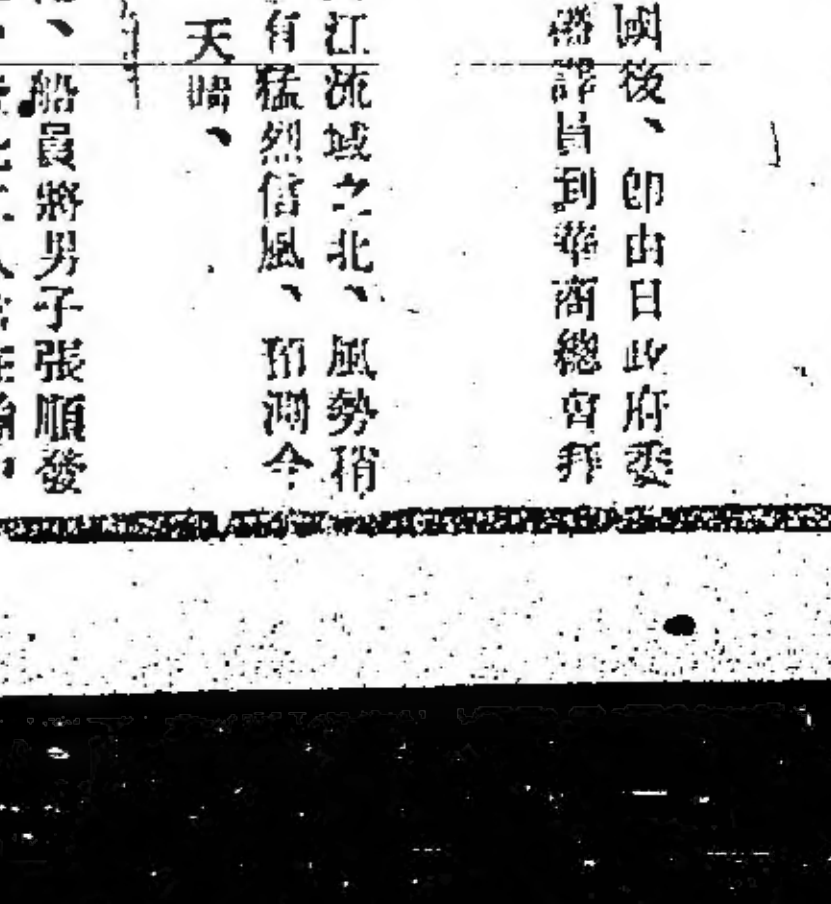 國後、卽由日政府委
譯員到華商總會拜
江流域之北、風勢稍
有猛烈信風、預測今
天晴、
船員將男子張順發